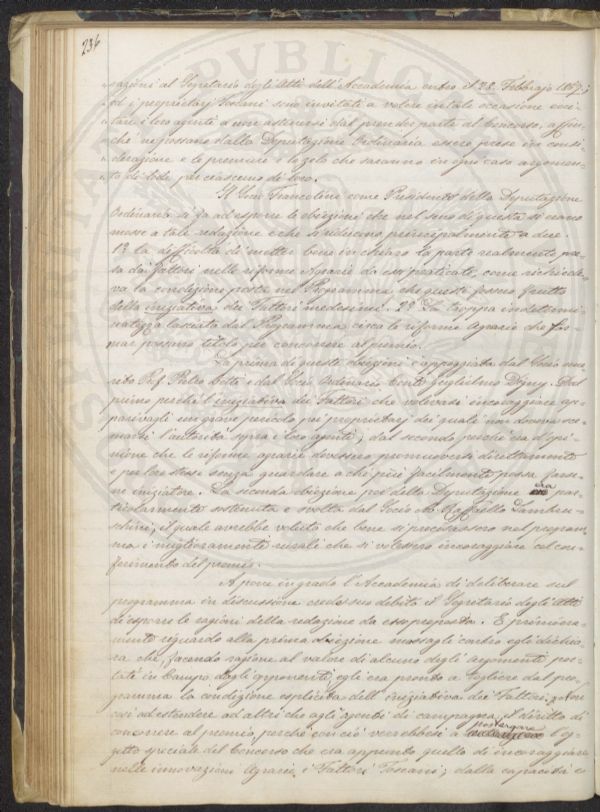 236
sazioni al Segretario degli Atti dell'Accademia entro il 28 Febbrajo 1867;
ed i proprietarj Toscani sono invitati a volere in tale occasione ecci-
tare i loro agenti a non astenersi dal prender parte al Concorso, affin-
chè ne possano dalla Deputazione Ordinaria essere prese in consi-
derazione e le premure e lo zelo che saranno in ogni caso argomen-
to di lode per ciascuno di loro.
Il Socio Franceschini come Presidente della Deputazione
Ordinaria si fa ad esporre le obiezioni che nel seno di questa si erano
mosse a tale redazione e che si riducono principalmente a due.
1ª la difficoltà di metter bene in chiaro la parte realmente pre-
sa dai fattori nelle riforme Agrarie da essi praticate, come richiede-
va la condizione posta nel Programma che queste fossero frutto
della iniziativa dei Fattori medesimi. 2ª La troppa indetermi-
natezza lasciata dal Programma circa le riforme agrarie che for-
mar possono titolo per concorrere al premio.
La prima di queste obiezioni è appoggiata dal Socio eme-
rito Prof. Pietro e dal Socio Ordinario Conte Guglielmo Digny. Dal
primo perchè l'iniziativa dei Fattori che volevasi incoraggiare ap-
parivagli un grave pericolo pei proprietarj dei quali non doveva sce-
marsi l'autorità sopra i loro agenti; dal secondo perchè era d'opi-
nione che le riforme agrarie dovessero promuoversi direttamente
e per loro stesse senza guardare a chi più facilmente possa farse-
ne iniziatore. La seconda obiezione poi della Deputazione era par-
ticolarmente sostenuta e svolta dal Socio Ab. Raffaello Lambru-
schini, il quale avrebbe voluto che bene si precisassero nel program-
ma i miglioramenti rurali che si volessero incoraggiare col con-
ferimento del premio.
A porre in grado l'Accademia di deliberare sul
programma in discussione crede suo debito il Segretario degli Atti
di esporre le ragioni della redazione da esso proposta. E primiera-
mente riguardo alla prima obiezione mossagli contro egli dichia-
ra che, facendo ragione al valore di alcuno degli argomenti por-
tati in campo dagli opponenti, egli era pronto a togliere dal pro-
gramma la condizione esplicita dell'iniziativa dei Fattori, non
così ad estendere ad altri che agli agenti di campagna, il diritto di
concorrere al premio, perchè con ciò verrebbesi a postergare l'og-
getto speciale del Concorso che era appunto quello di incoraggiare
nelle innovazioni Agrarie i Fattori Toscani; dalla capacità e